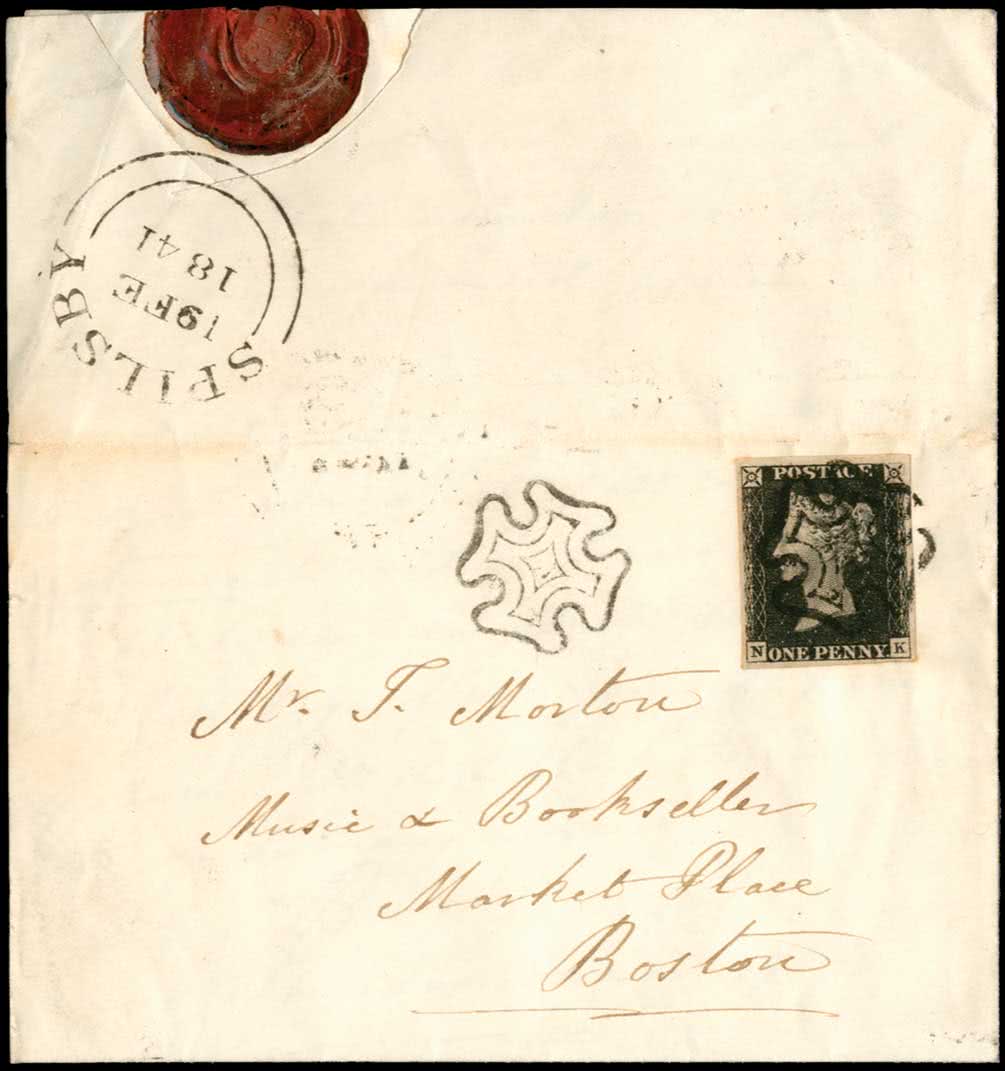 SPILSBY
19 FE
1841
POSTAGE
N ONE PENNY K
Mr. T. Morton
Music & Bookseller
Market Place
Boston